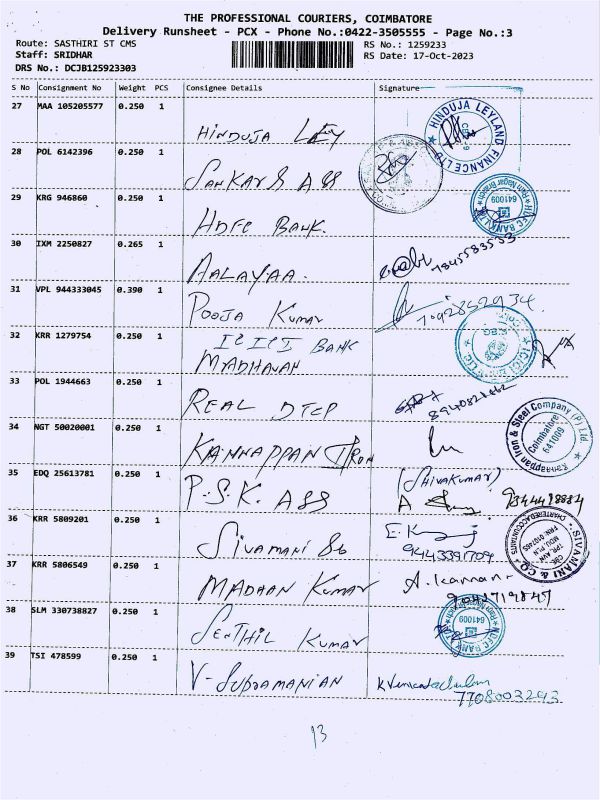 THE PROFESSIONAL COURIERS, COIMBATORE
Delivery Runsheet - PCX - Phone No.:0422-3505555 - Page No.:3
Route: SASTHIRI ST CMS
RS No.: 1259233
Staff: SRIDHAR
RS Date: 17-Oct-2023
DRS No.: DCJB125923303
S No Consignment No Weight PCS Consignee Details Signature
27 MAA 105205577 0.250 1
HINDUJA
HINDUJA LEYLAND FINANCE LTD
28 POL 6142396 0.250 1
SANKAR & ASS
29 KRG 946860 0.250 1
HDFC BANK.
HDFC BANK LTD Ram Nagar Branch 641009
30 IXM 2250827 0.265 1
AALAYAA.
7845583553
31 VPL 944333045 0.390 1
POOJA KUMAR
7092852934
32 KRR 1279754 0.250 1
ICICI BANK
MADHAVAN
33 POL 1944663 0.250 1
REAL DTCP
34 NGT 50020001 0.250 1
KANNAPPAN IRON
Kannappan Iron & Steel Company (P) Ltd
Coimbatore
641009
35 EDQ 25613781 0.250 1
P.S.K. ASS
(SHIVAKUMAR)
36 KRR 5809201 0.250 1
SIVAMANI &
9443391709
SIVAMANI & CO
CHARTERED ACCOUNTANTS
37 KRR 5806549 0.250 1
MADHAN KUMAR
A. Kannan
38 SLM 330738827 0.250 1
SENTHIL KUMAR
HDFC BANK Ram Nagar Branch 641009
39 TSI 478599 0.250 1
V-SUBRAMANIAN
K Venkatachalam
7708003293
13